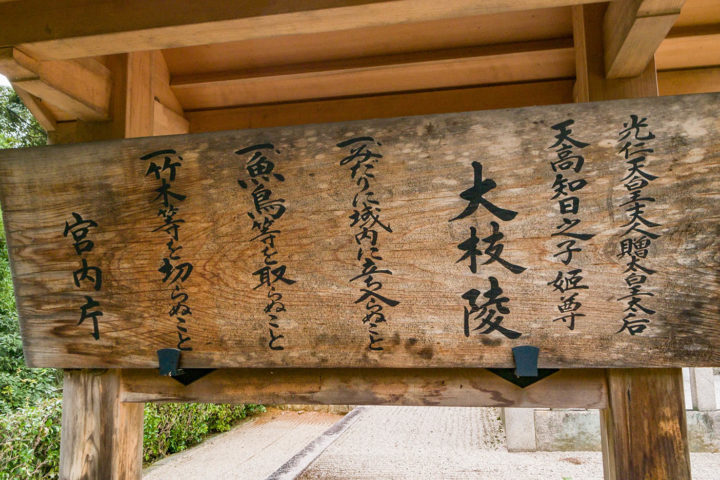 光仁天皇夫人贈太皇太后
天高知日之子姫尊
大枝陵
一、みだりに域内に立ち入らぬこと
一、魚鳥等を取らぬこと
一、竹木等を切らぬこと
宮内庁